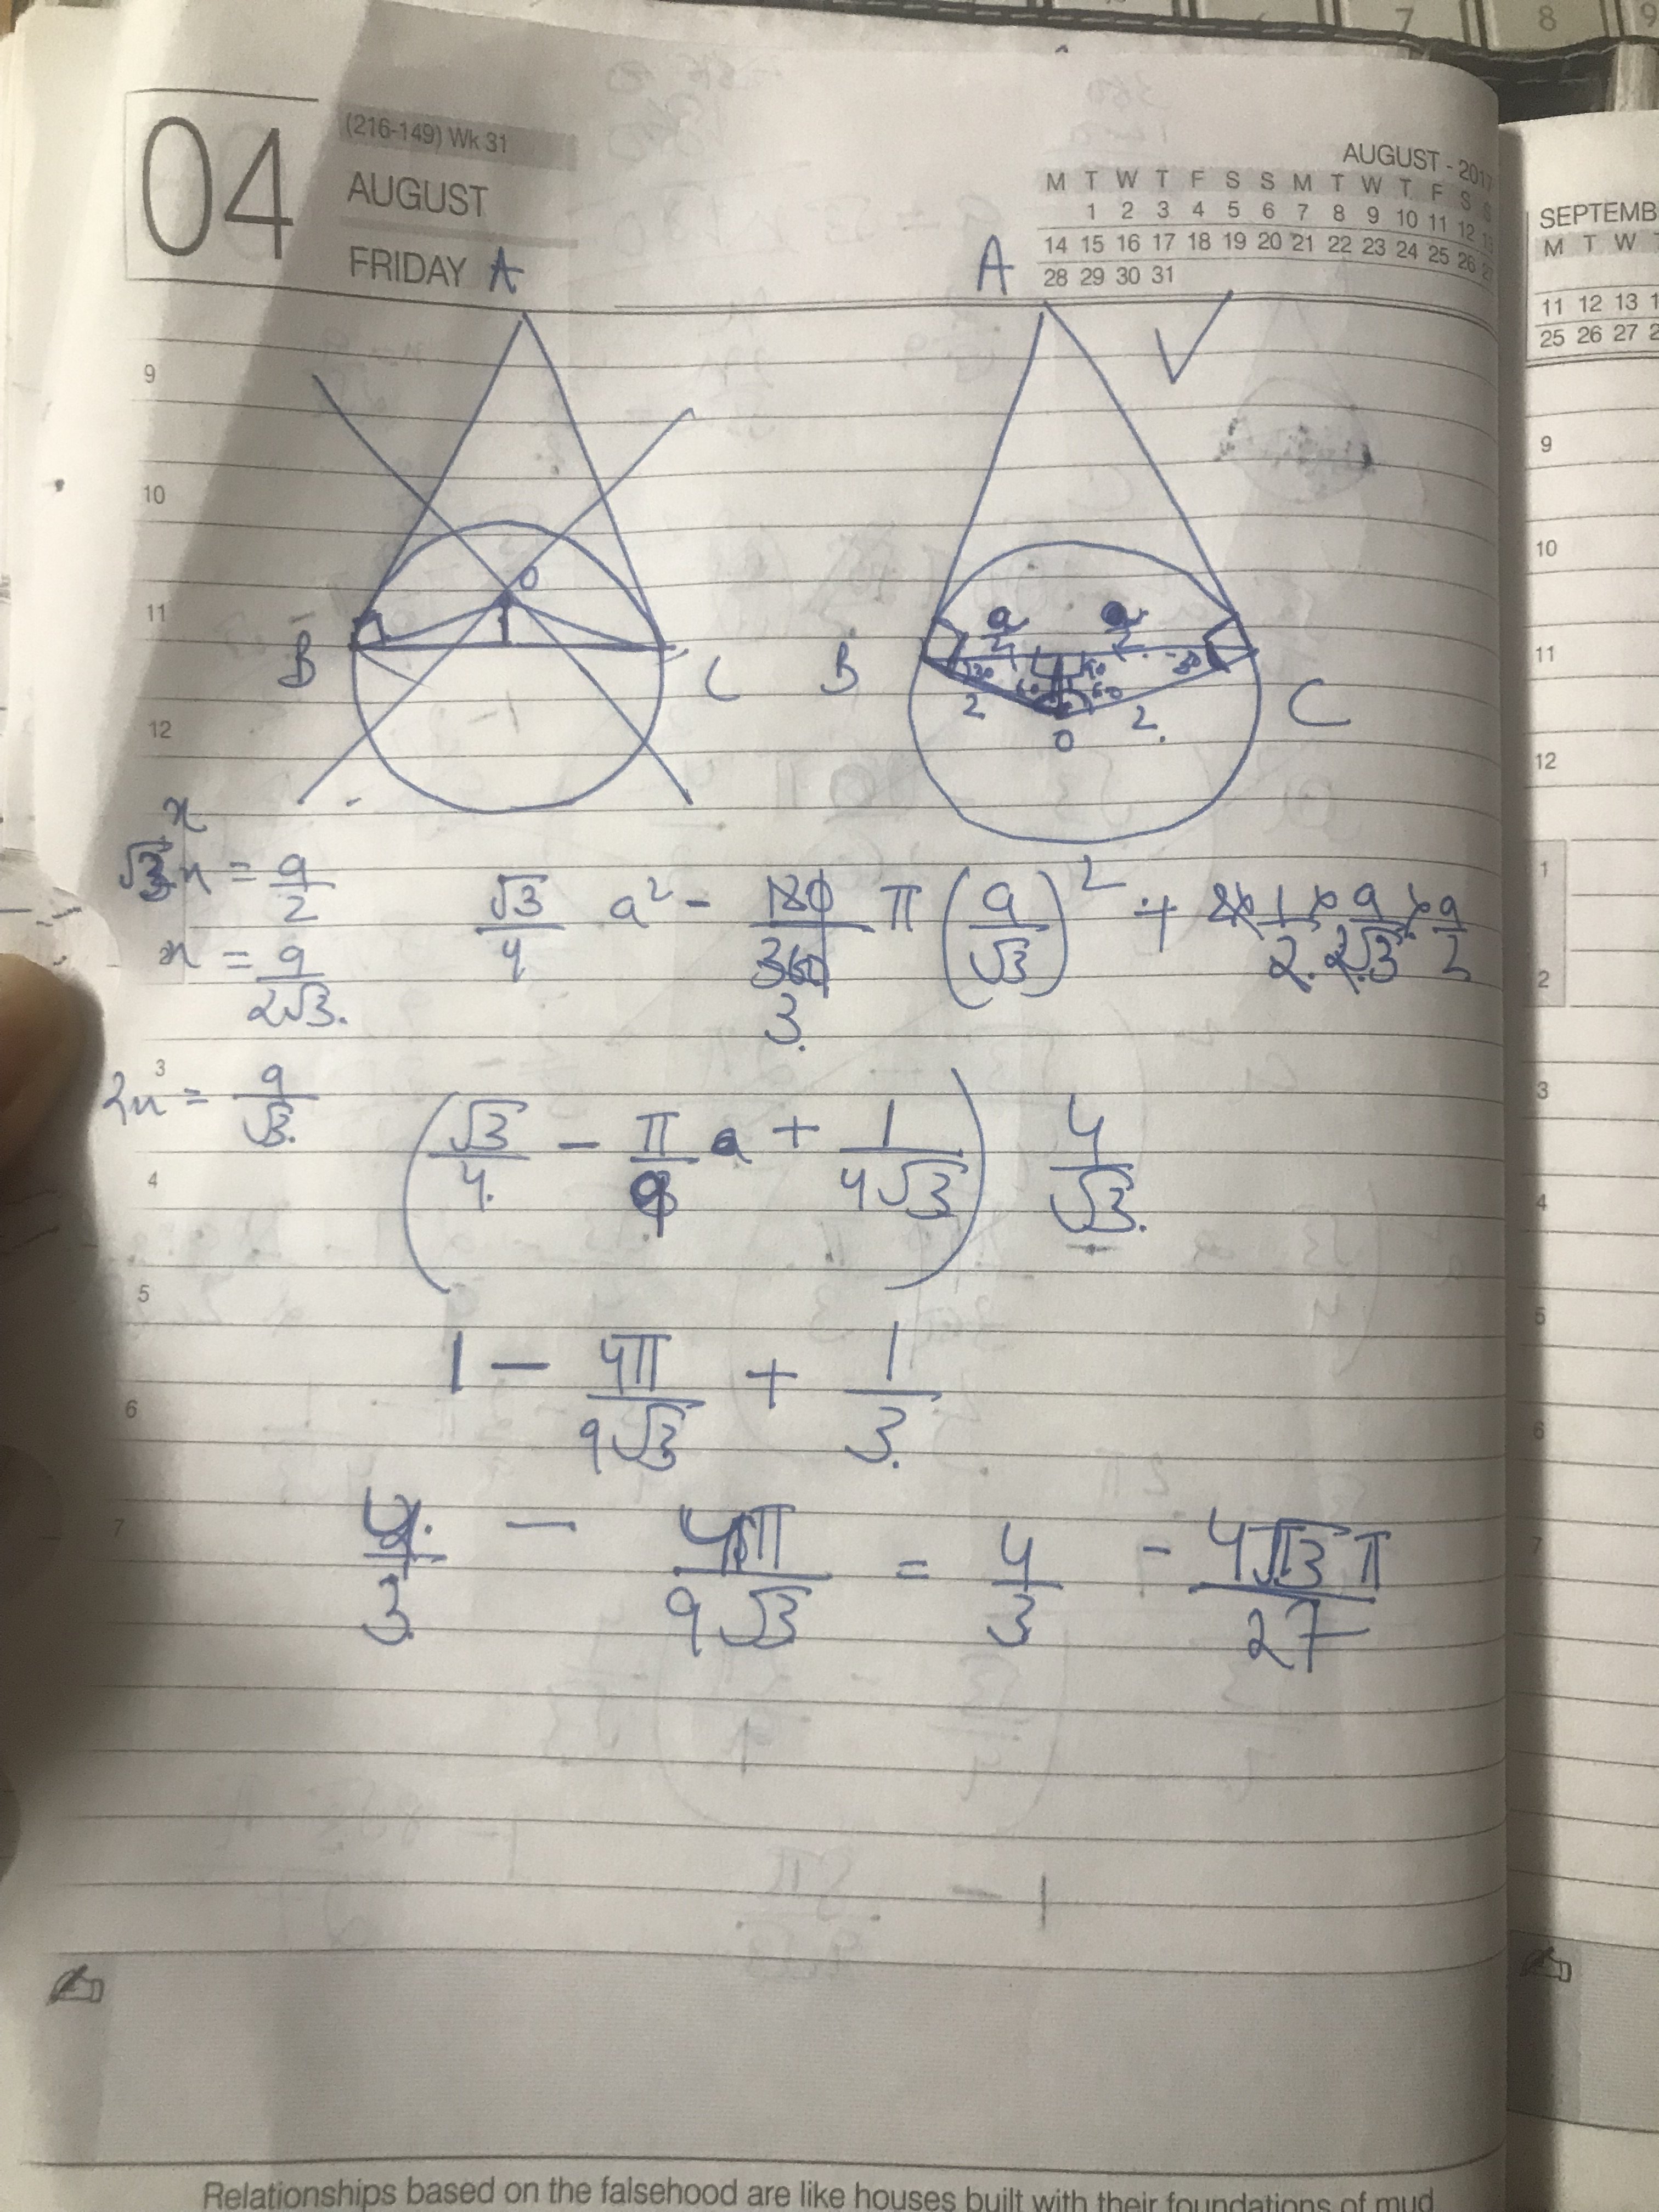 7 8 9
04
(216-149) Wk 31
AUGUST
FRIDAY
AUGUST - 2017
M T W T F S S M T W T F S S
1 2 3 4 5 6 7 8 9 10 11 12 13
14 15 16 17 18 19 20 21 22 23 24 25 26 27
28 29 30 31
SEPTEMB
M T W
11 12 13
25 26 27
A
A
9
10
11
12
3
4
5
6
7
O
B
C
B
C
a/2 a/2
30 90 30
60 60
2 2
O
x
√3x = a/2
x = a/2√3.
2x = a/√3.
√3/4 a² - 120/360 π (a/√3)² + 2x 1/2 x a/2√3 x a/2
3.
(√3/4. - π/9 a + 1/4√3) 4/√3.
1 - 4π/9√3 + 1/3.
4/3 - 4π/9√3 = 4/3 - 4√3π/27
9
10
11
12
1
2
3
4
5
6
7
Relationships based on the falsehood are like houses built with their foundations of mud